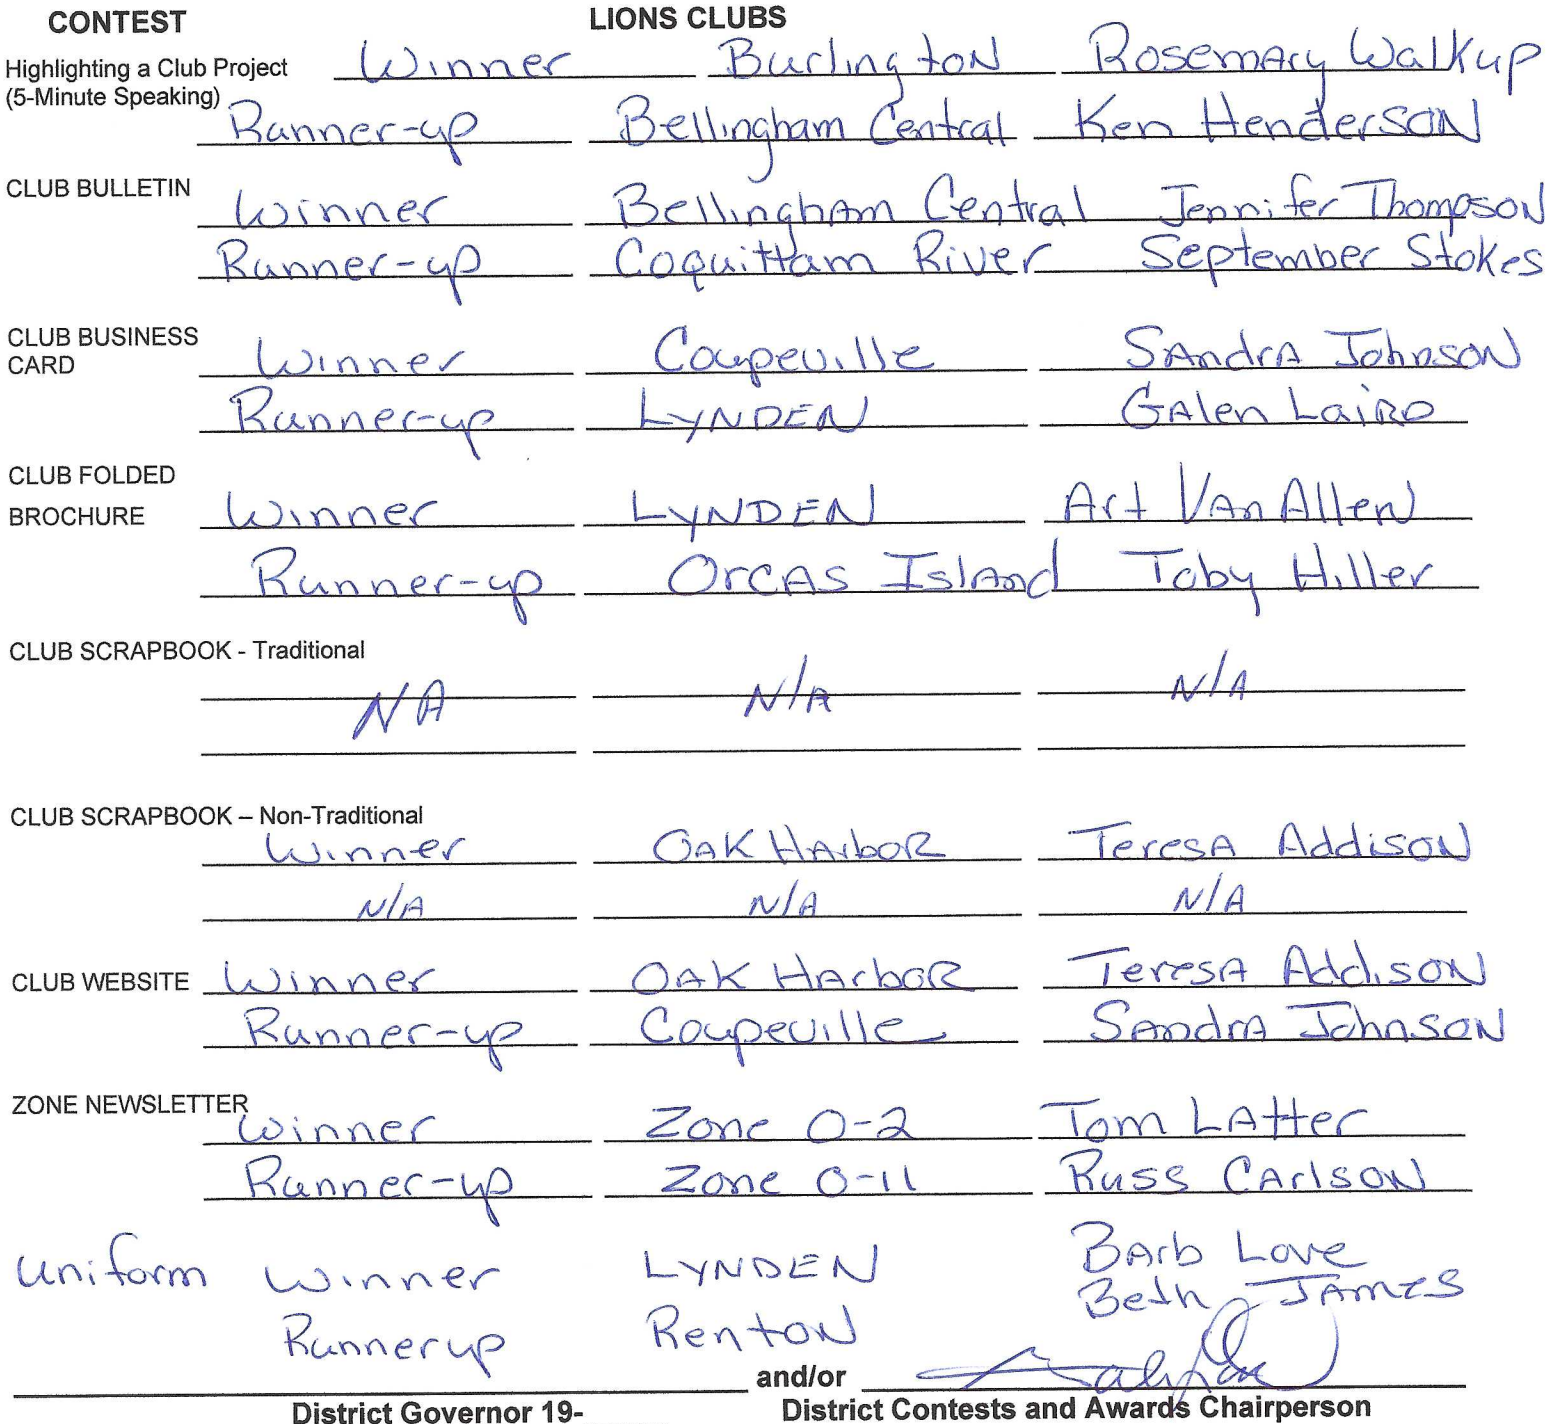 CONTEST LIONS CLUBS
Highlighting a Club Project Winner Burlington Rosemary Walkup
(5-Minute Speaking) Runner-up Bellingham Central Ken Henderson
CLUB BULLETIN Winner Bellingham Central Jennifer Thompson
Runner-up Coquittam River September Stokes
CLUB BUSINESS
CARD Winner Coupeville Sandra Johnson
Runner-up LYNDEN Galen Laird
CLUB FOLDED
BROCHURE Winner LYNDEN Art Van Allen
Runner-up Orcas Island Toby Hiller
CLUB SCRAPBOOK - Traditional
N/A N/A N/A
CLUB SCRAPBOOK – Non-Traditional
Winner Oak Harbor Teresa Addison
N/A N/A N/A
CLUB WEBSITE Winner Oak Harbor Teresa Addison
Runner-up Coupeville Sandra Johnson
ZONE NEWSLETTER
Winner Zone O-2 Tom Latter
Runner-up Zone O-11 Russ Carlson
uniform Winner LYNDEN Barb Love
Runnerup Renton Beth James
and/or
District Governor 19-____ District Contests and Awards Chairperson